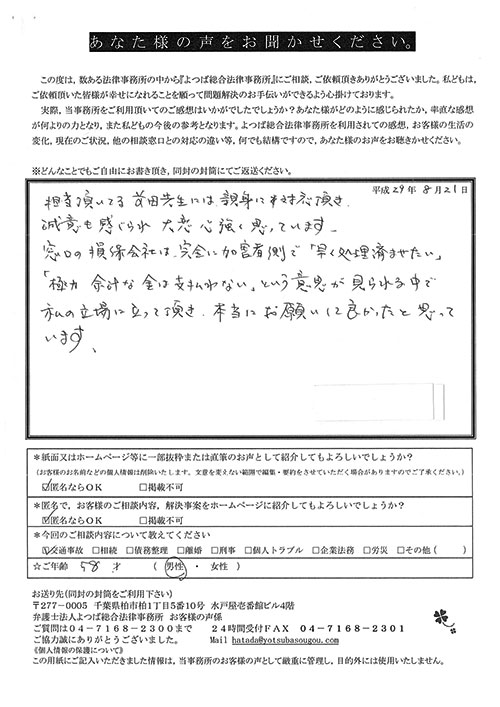 あなた様の声をお聞かせください。
この度は、数ある法律事務所の中から『よつば総合法律事務所』にご相談、ご依頼頂きありがとうございました。私どもは、
ご依頼頂いた皆様が幸せになれることを願って問題解決のお手伝いができるよう心掛けております。
実際、当事務所をご利用頂いてのご感想はいかがでしたでしょうか？あなた様がどのように感じられたか、率直な感想
が何よりの力となり、また私どもの今後の参考となります。よつば総合法律事務所を利用されての感想、お客様の生活の
変化、現在のご状況、他の相談窓口との対応の違い等、何でも結構ですので、あなた様のお声をお聴きかせください。
※どんなことでもご自由にお書き頂き、同封の封筒にてご返送ください。
平成29年8月21日
担当頂いてる前田先生には親身に対応頂き
誠意も感じられ大変心強く思っています。
窓口の損保会社は、完全に加害者側で「早く処理済ませたい」
「極力余計な金は支払わない」という意思が見られる中で
私の立場に立って頂き、本当にお願いして良かったと思って
います。
＊紙面又はホームページ等に一部抜粋または直筆のお声として紹介してもよろしいでしょうか？
（お客様のお名前などの個人情報は削除いたします。文意を変えない範囲で編集・要約をさせていただく場合がありますのでご了承ください。）
☑匿名ならOK □掲載不可
＊匿名で、お客様のご相談内容、解決事案をホームページに紹介してもよろしいでしょうか？
☑匿名ならOK □掲載不可
＊今回のご相談内容について教えてください
☑交通事故 □相続 □債務整理 □離婚 □刑事 □個人トラブル □企業法務 □労災 □その他（ ）
☆ご年齢 58 才 （男性 ・ 女性）
お送り先（同封の封筒をご利用下さい）
〒277-0005 千葉県柏市柏1丁目5番10号 水戸屋壱番館ビル4階
弁護士法人よつば総合法律事務所 お客様の声係
ご質問は04-7168-2300まで 24時間受付FAX 04-7168-2301
ご協力誠にありがとうございました。 Mail hatada@yotsubasougou.com
《個人情報の保護について》
この用紙にご記入いただきました情報は、当事務所のお客様の声として厳重に管理し、目的外には使用いたしません。